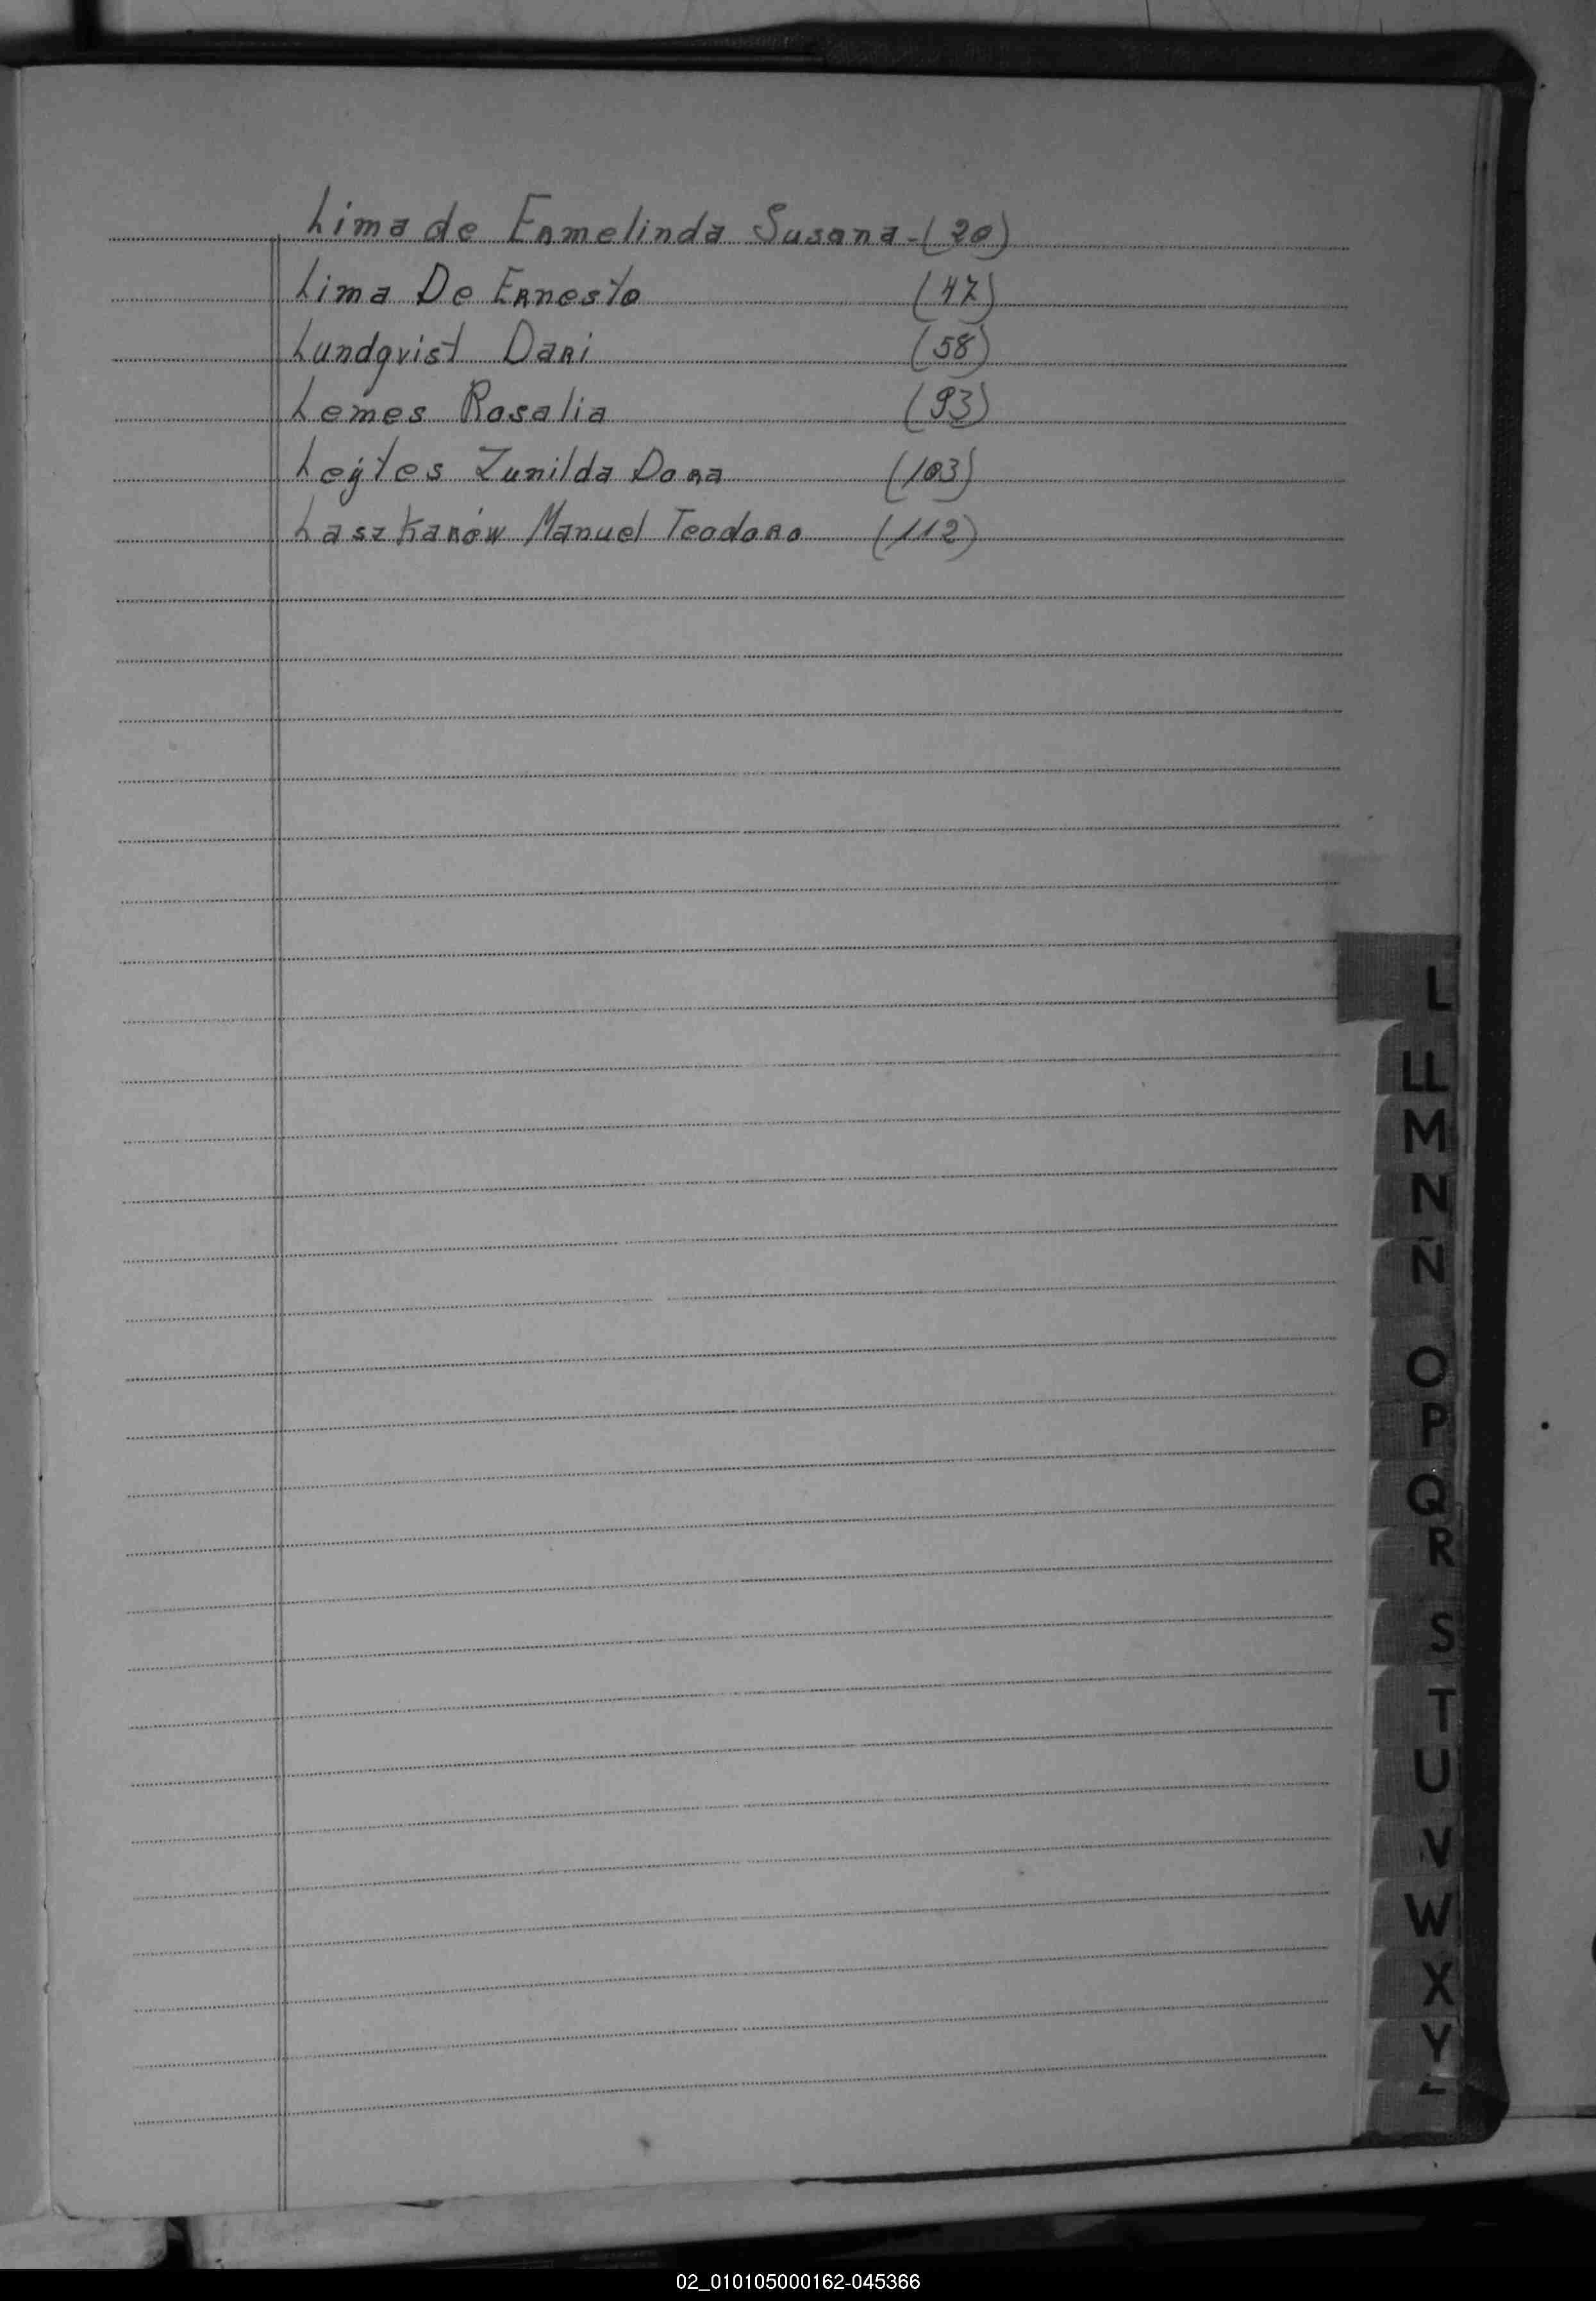 Lima de Ermelinda Susana - (20)
Lima De Ernesto (47)
Lundqvist Dari (58)
Lemes Rosalia (93)
Leytes Zunilda Dora (103)
Laszkarów Manuel Teodoro (112)
L
LL
M
N
Ñ
O
P
Q
R
S
T
U
V
W
X
Y
Z
02_010105000162-045366